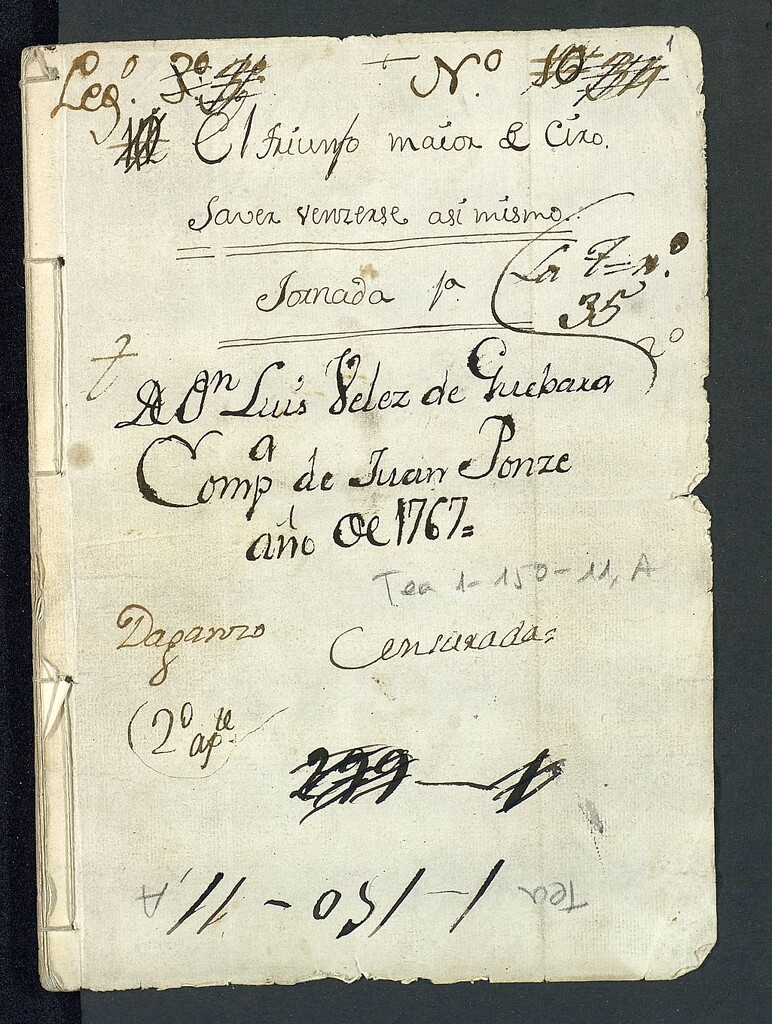 1
Leg.º 3º Nº 10
El triunfo maior de Ciro.
Saver venzerse asi mismo.
Jornada 1ª
La 7=n.º
35
2º
De Dn Luis Velez de Guebara
Compª de Juan Ponze
año de 1767=
Tea 1-150-11, A
Daganzo
Censurada=
2º apte
299 — 1
Tea 1-150-11, A